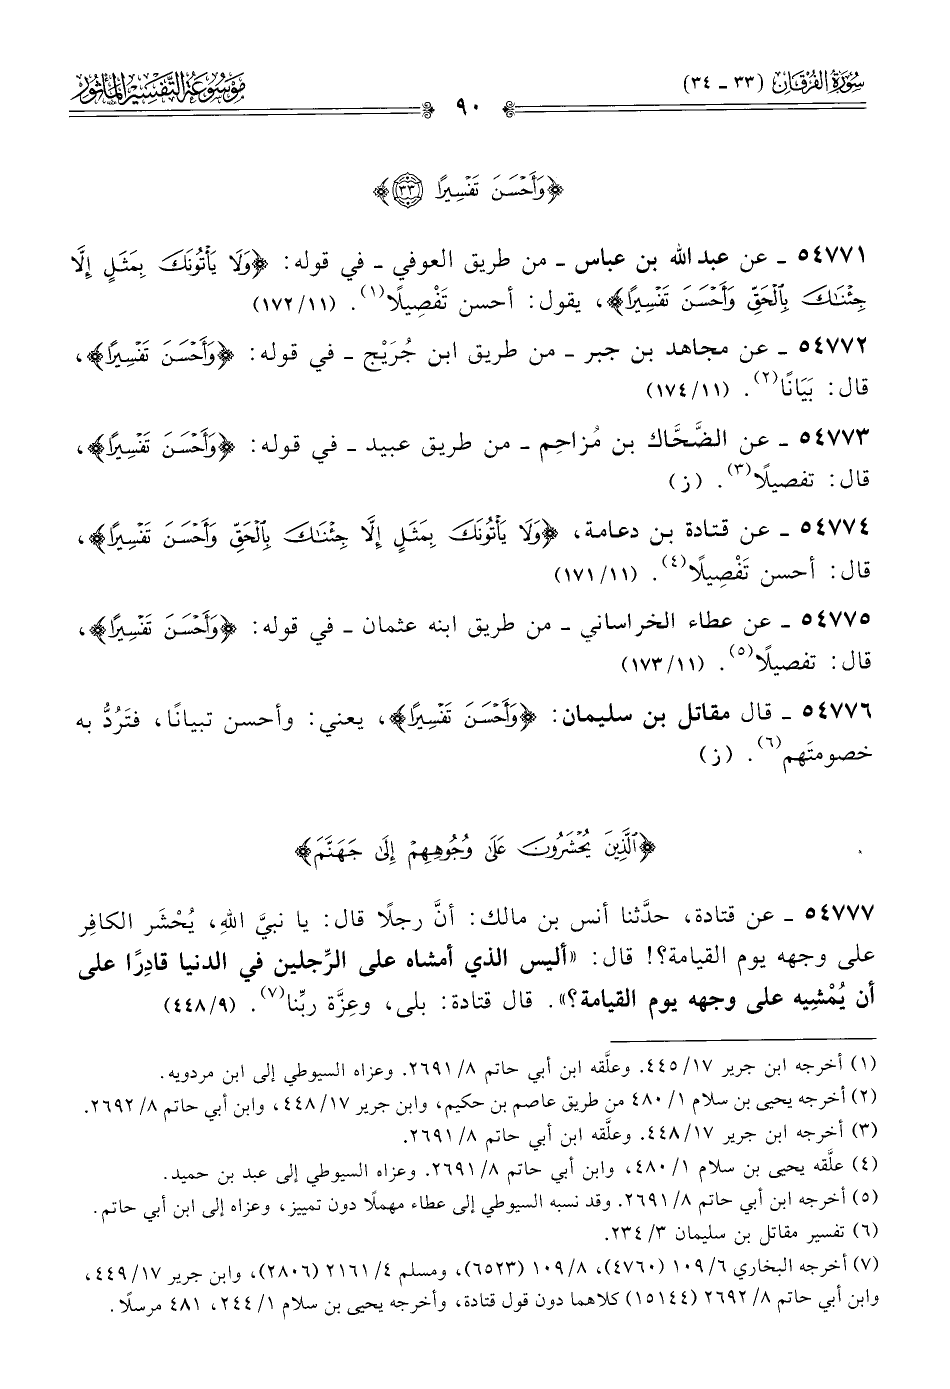 سُورَةُ الفُرْقَانِ (٣٣ - ٣٤)
٩٠
مَوْسُوعَةُ التَّفْسِيرِ المَأْثُور
﴿وَأَحْسَنَ تَفْسِيرًا ٣٣﴾
٥٤٧٧١ - عن عبد الله بن عباس - من طريق العوفي - في قوله: ﴿وَلَا يَأْتُونَكَ بِمَثَلٍ إِلَّا
جِئْنَاكَ بِالْحَقِّ وَأَحْسَنَ تَفْسِيرًا﴾، يقول: أحسن تَفْصِيلًا(١). (١١/ ١٧٢)
٥٤٧٧٢ - عن مجاهد بن جبر - من طريق ابن جُرَيْج - في قوله: ﴿وَأَحْسَنَ تَفْسِيرًا﴾،
قال: بَيَانًا(٢). (١١/ ١٧٤)
٥٤٧٧٣ - عن الضَّحَّاك بن مُزاحِم - من طريق عبيد - في قوله: ﴿وَأَحْسَنَ تَفْسِيرًا﴾،
قال: تفصيلًا(٣). (ز)
٥٤٧٧٤ - عن قتادة بن دعامة، ﴿وَلَا يَأْتُونَكَ بِمَثَلٍ إِلَّا جِئْنَاكَ بِالْحَقِّ وَأَحْسَنَ تَفْسِيرًا﴾،
قال: أحسن تَفْصِيلًا(٤). (١١/ ١٧١)
٥٤٧٧٥ - عن عطاء الخراساني - من طريق ابنه عثمان - في قوله: ﴿وَأَحْسَنَ تَفْسِيرًا﴾،
قال: تفصيلًا(٥). (١١/ ١٧٣)
٥٤٧٧٦ - قال مقاتل بن سليمان: ﴿وَأَحْسَنَ تَفْسِيرًا﴾، يعني: وأحسن تبيانًا، فتَرُدُّ به
خصومتَهم(٦). (ز)
﴿الَّذِينَ يُحْشَرُونَ عَلَى وُجُوهِهِمْ إِلَى جَهَنَّمَ﴾
٥٤٧٧٧ - عن قتادة، حدَّثنا أنس بن مالك: أنَّ رجلًا قال: يا نبيَّ اللهِ، يُحْشَر الكافِر
على وجهه يوم القيامة؟! قال: «أليس الذي أمشاه على الرِّجلين في الدنيا قادِرًا على
أن يُمْشِيه على وجهه يوم القيامة؟». قال قتادة: بلى، وعِزَّة ربِّنا(٧). (٩/ ٤٤٨)
(١) أخرجه ابن جرير ١٧/ ٤٤٥. وعلَّقه ابن أبي حاتم ٨/ ٢٦٩١. وعزاه السيوطي إلى ابن مردويه.
(٢) أخرجه يحيى بن سلام ١/ ٤٨٠ من طريق عاصم بن حكيم، وابن جرير ١٧/ ٤٤٨، وابن أبي حاتم ٨/ ٢٦٩٢.
(٣) أخرجه ابن جرير ١٧/ ٤٤٨. وعلَّقه ابن أبي حاتم ٨/ ٢٦٩١.
(٤) علَّقه يحيى بن سلام ١/ ٤٨٠، وابن أبي حاتم ٨/ ٢٦٩١. وعزاه السيوطي إلى عبد بن حميد.
(٥) أخرجه ابن أبي حاتم ٨/ ٢٦٩١. وقد نسبه السيوطي إلى عطاء مهملًا دون تمييز، وعزاه إلى ابن أبي حاتم.
(٦) تفسير مقاتل بن سليمان ٣/ ٢٣٤.
(٧) أخرجه البخاري ٦/ ١٠٩ (٤٧٦٠)، ٨/ ١٠٩ (٦٥٢٣)، ومسلم ٤/ ٢١٦١ (٢٨٠٦)، وابن جرير ١٧/ ٤٤٩،
وابن أبي حاتم ٨/ ٢٦٩٢ (١٥١٤٤) كلاهما دون قول قتادة، وأخرجه يحيى بن سلام ١/ ٢٤٤، ٤٨١ مرسلًا.